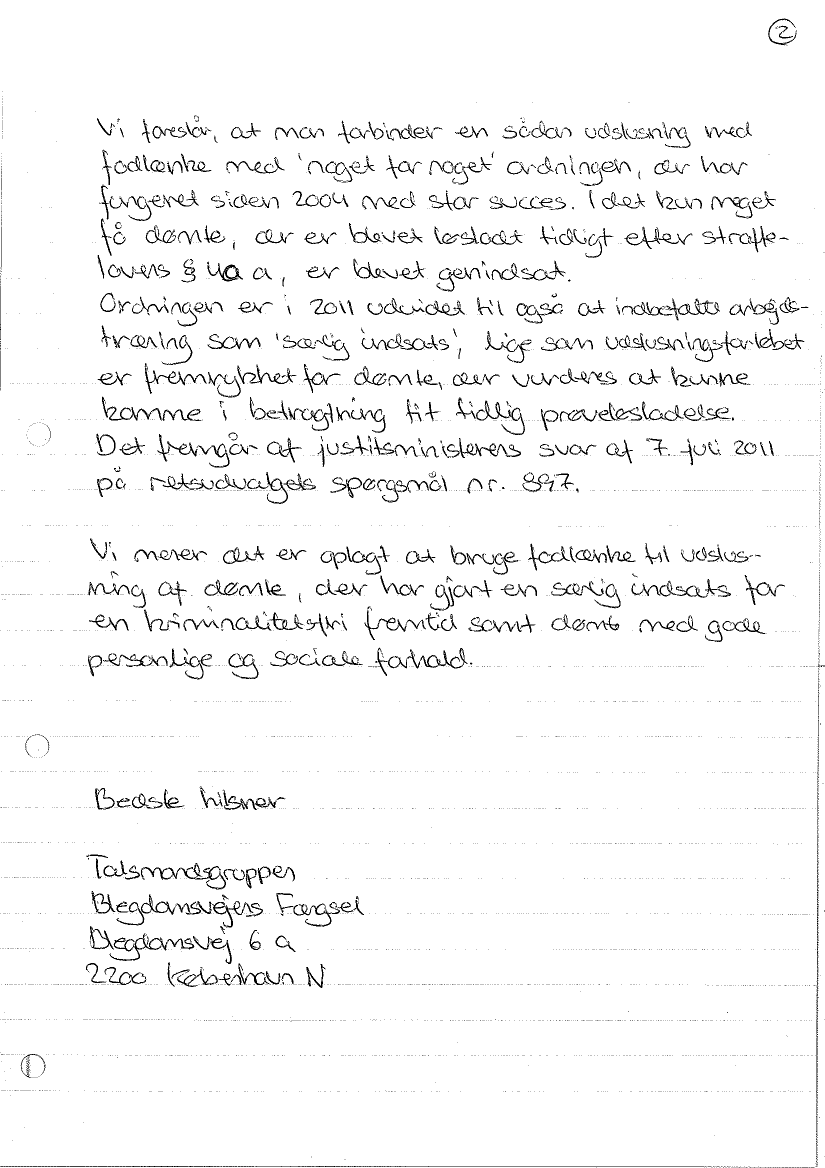 2
Vi foreslår, at man forbinder en sådan udslusning med
fodlænke med 'noget for noget' ordningen, der har
fungeret siden 2004 med stor succes. Idet kun meget
få dømte, der er blevet løsladt tidligt efter straffe-
lovens § 40a a, er blevet genindsat.
Ordningen er i 2011 udvidet til også at indbefatte arbejds-
træning som 'særlig indsats', lige som udslusningsforløbet
er fremrykket for dømte, der vurderes at kunne
komme i betragtning tit tidlig prøveløsladelse.
Det fremgår af justitsministerens svar af 7. juli 2011
på retsudvalgets spørgsmål nr. 897.
Vi mener det er oplagt at bruge fodlænke til udslus-
ning af dømte, der har gjort en særlig indsats for
en kriminalitetsfri fremtid samt dømte med gode
personlige og sociale forhold.
Bedste hilsner
Talsmandsgruppen
Blegdamsvejens Fængsel
Blegdamsvej 6 a
2200 København N